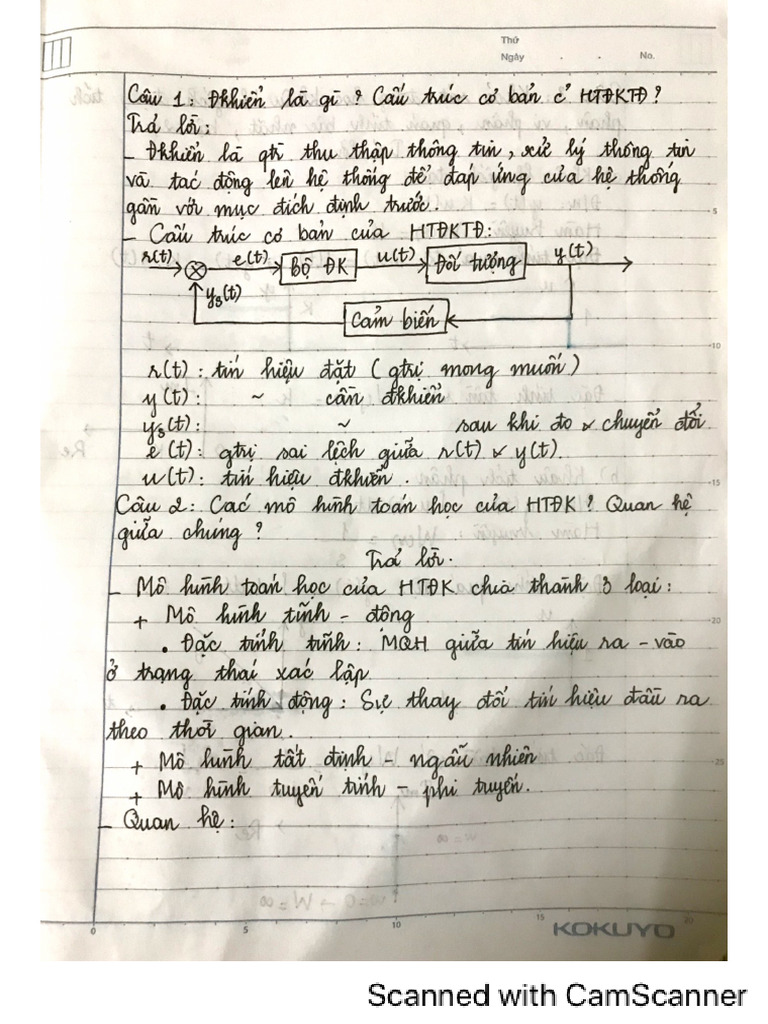 Thứ
Ngày . . No.
Câu 1: Đkhiển là gì? Cấu trúc cơ bản c² HTĐKTĐ?
Trả lời:
- Đkhiển là qtr thu thập thông tin, xử lý thông tin
và tác động lên hệ thống để đáp ứng của hệ thống
gần với mục đích định trước.
- Cấu trúc cơ bản của HTĐKTĐ:
r(t) e(t) Bộ ĐK u(t) Đối tượng y(t)
ys(t)
Cảm biến
r(t): tín hiệu đặt (gtrị mong muốn)
y(t): ~ cần đkhiển
ys(t): ~ sau khi đo & chuyển đổi
e(t): gtrị sai lệch giữa r(t) & y(t).
u(t): tín hiệu đkhiển.
Câu 2: Các mô hình toán học của HTĐK? Quan hệ
giữa chúng?
Trả lời.
- Mô hình toán học của HTĐK chia thành 3 loại:
+ Mô hình tĩnh - động
• Đặc tính tĩnh: MQH giữa tín hiệu ra - vào
ở trạng thái xác lập
• Đặc tính động: Sự thay đổi tín hiệu đầu ra
theo thời gian.
+ Mô hình tất định - ngẫu nhiên
+ Mô hình tuyến tính - phi tuyến.
- Quan hệ:
0 5 10 15 20
KOKUYO
Scanned with CamScanner